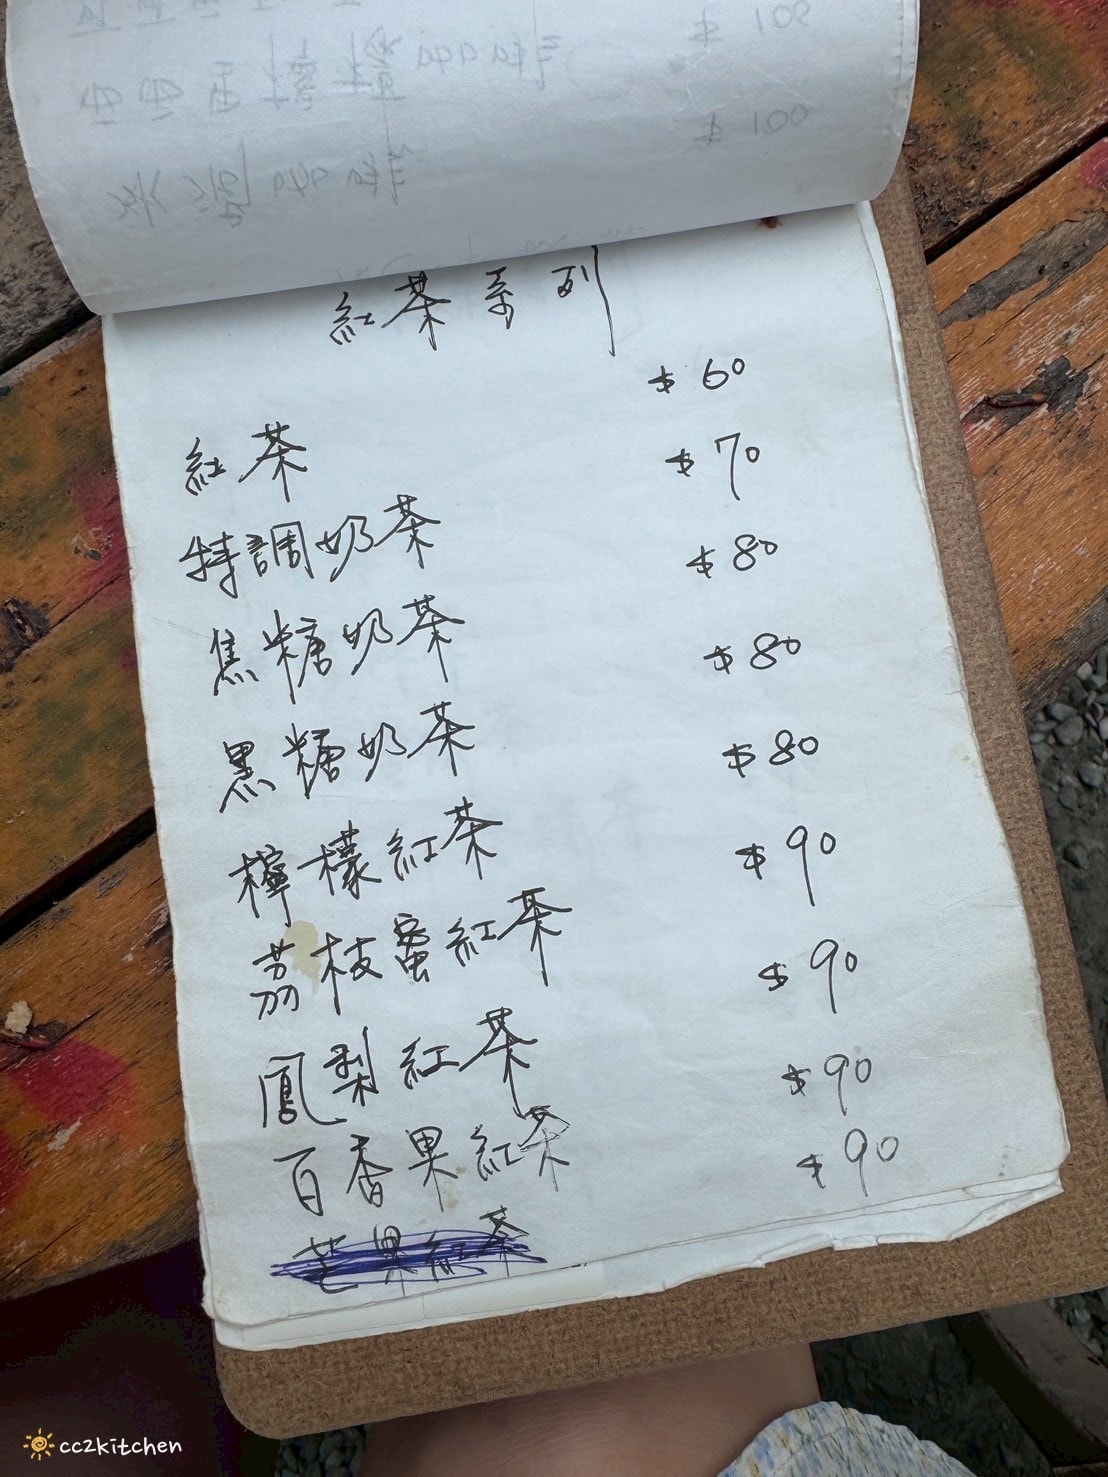 紅茶系列
紅茶 $60
特調奶茶 $70
焦糖奶茶 $80
黑糖奶茶 $80
檸檬紅茶 $80
荔枝蜜紅茶 $90
鳳梨紅茶 $90
百香果紅茶 $90
芒果紅茶 $90
cc2kitchen